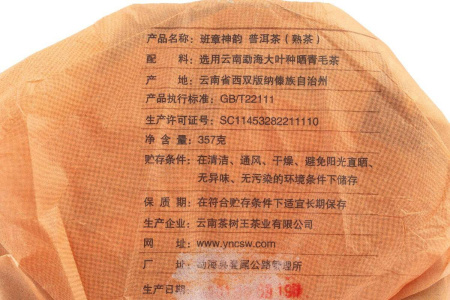 产品名称：班章神韵 普洱茶（熟茶）
配 料：选用云南勐海大叶种晒青毛茶
产 地：云南省西双版纳傣族自治州
产品执行标准：GB/T22111
生产许可证号：SC11453282211110
净 含 量：357克
贮存条件：在清洁、通风、干燥、避免阳光直晒、
无异味、无污染的环境条件下储存
保 质 期：在符合贮存条件下适宜长期保存
生产企业：云南茶树王茶业有限公司
网 址：www.yncsw.com
厂 址：勐海县星尾公路管理所
生产日期